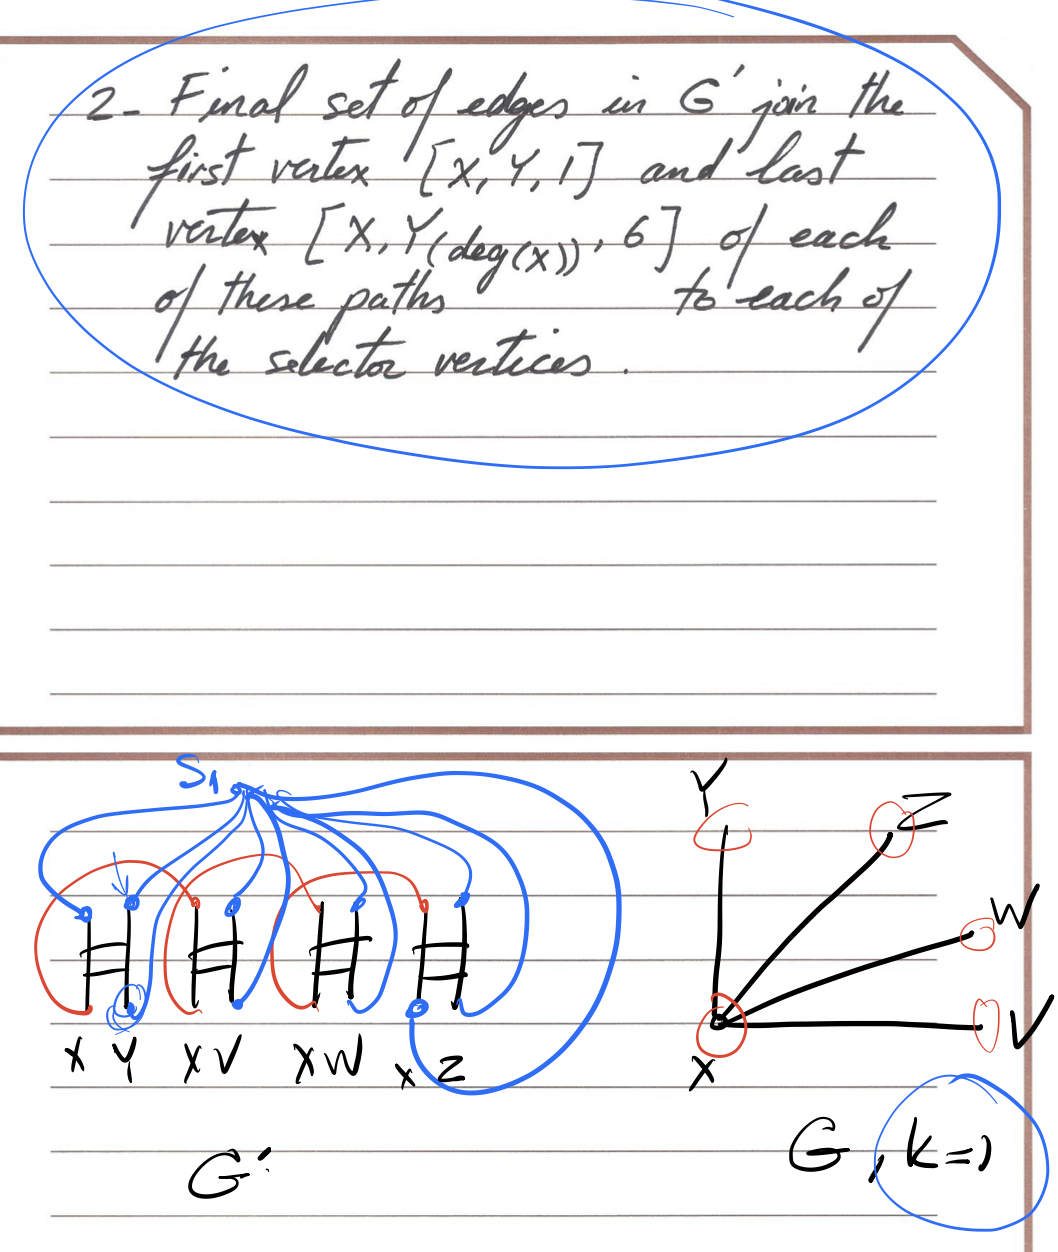 2- Final set of edges in G' join the
first vertex [X, Y, 1] and last
vertex [X, Y(deg(x)), 6] of each
of these paths to each of
the selector vertices.
S1
Y
Z
W
V
X
X Y X V X W X Z
G, k=1
G'